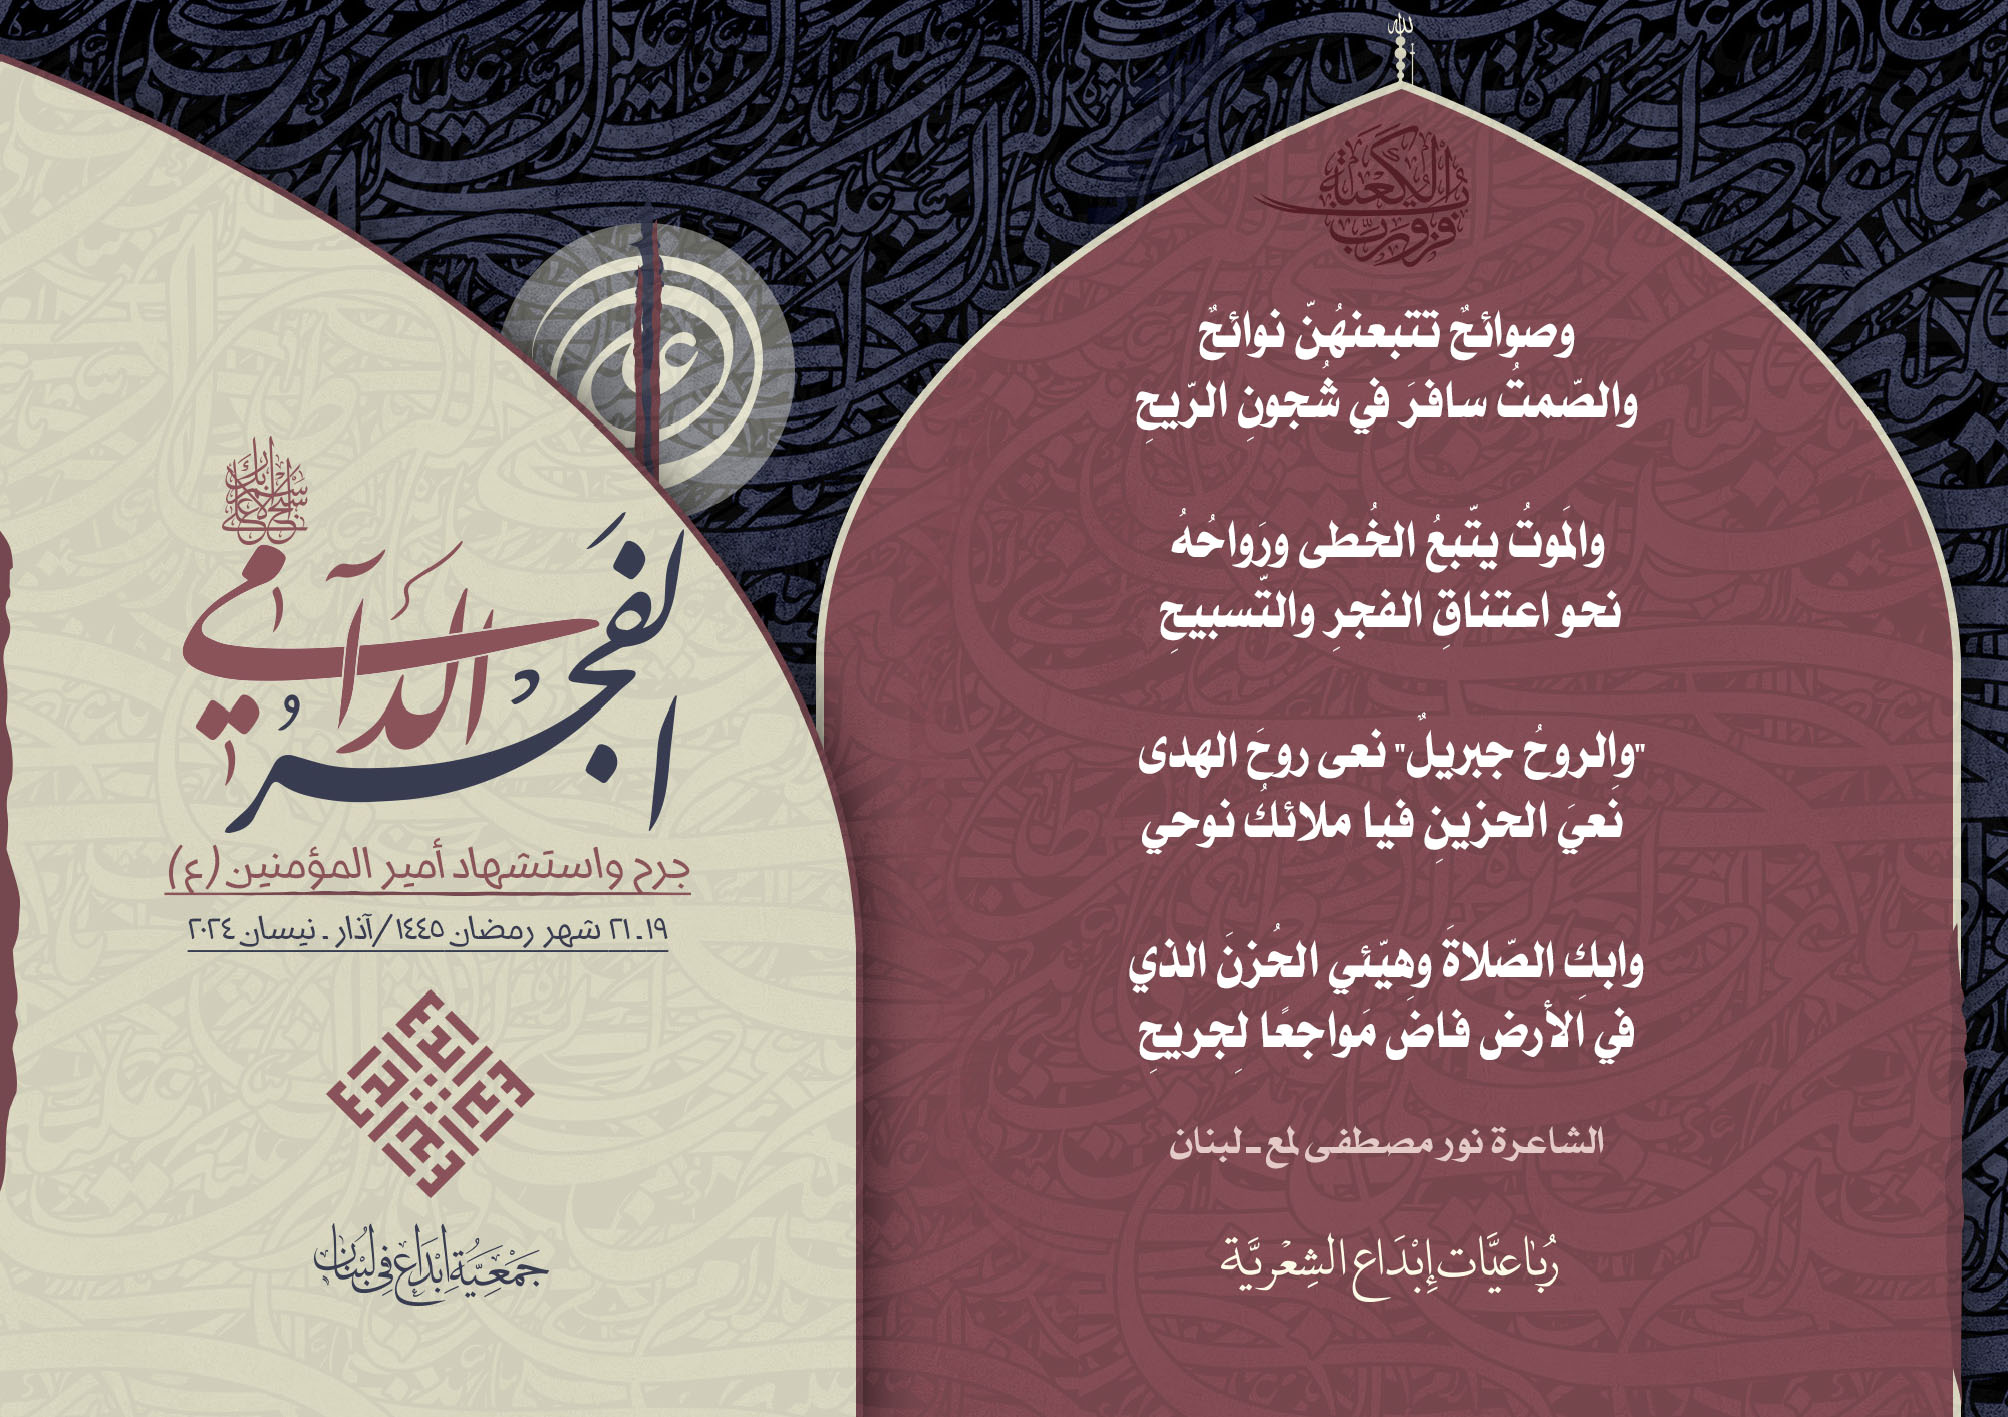 الله
فزت ورب الكعبة
وصوائحٌ تتبعنهُنّ نوائحٌ
والصّمتُ سافرَ في شُجونِ الرّيحِ
والمَوتُ يتّبعُ الخُطى ورَواحُهُ
نحو اعتناقِ الفجرِ والتّسبيحِ
"والروحُ جبريلٌ" نعى روحَ الهدى
نعيَ الحزينِ فيا ملائكُ نوحي
وابكِ الصّلاةَ وهيّئي الحُزنَ الذي
في الأرض فاضَ مَواجعًا لِجريحِ
الشاعرة نور مصطفى لمع ـ لبنان
رُبَاعيَّات إِبْدَاع الشِعْريَّة
علي
سبح اسم ربك الأعلى
الفَجرُ الدَّآمي
جرح واستشهاد أمير المؤمنين (ع)
١٩ ـ ٢١ شهر رمضان ١٤٤٥ / آذار ـ نيسان ٢٠٢٤
جَمْعِيَّة إِبْدَاع فِي لُبْنَان